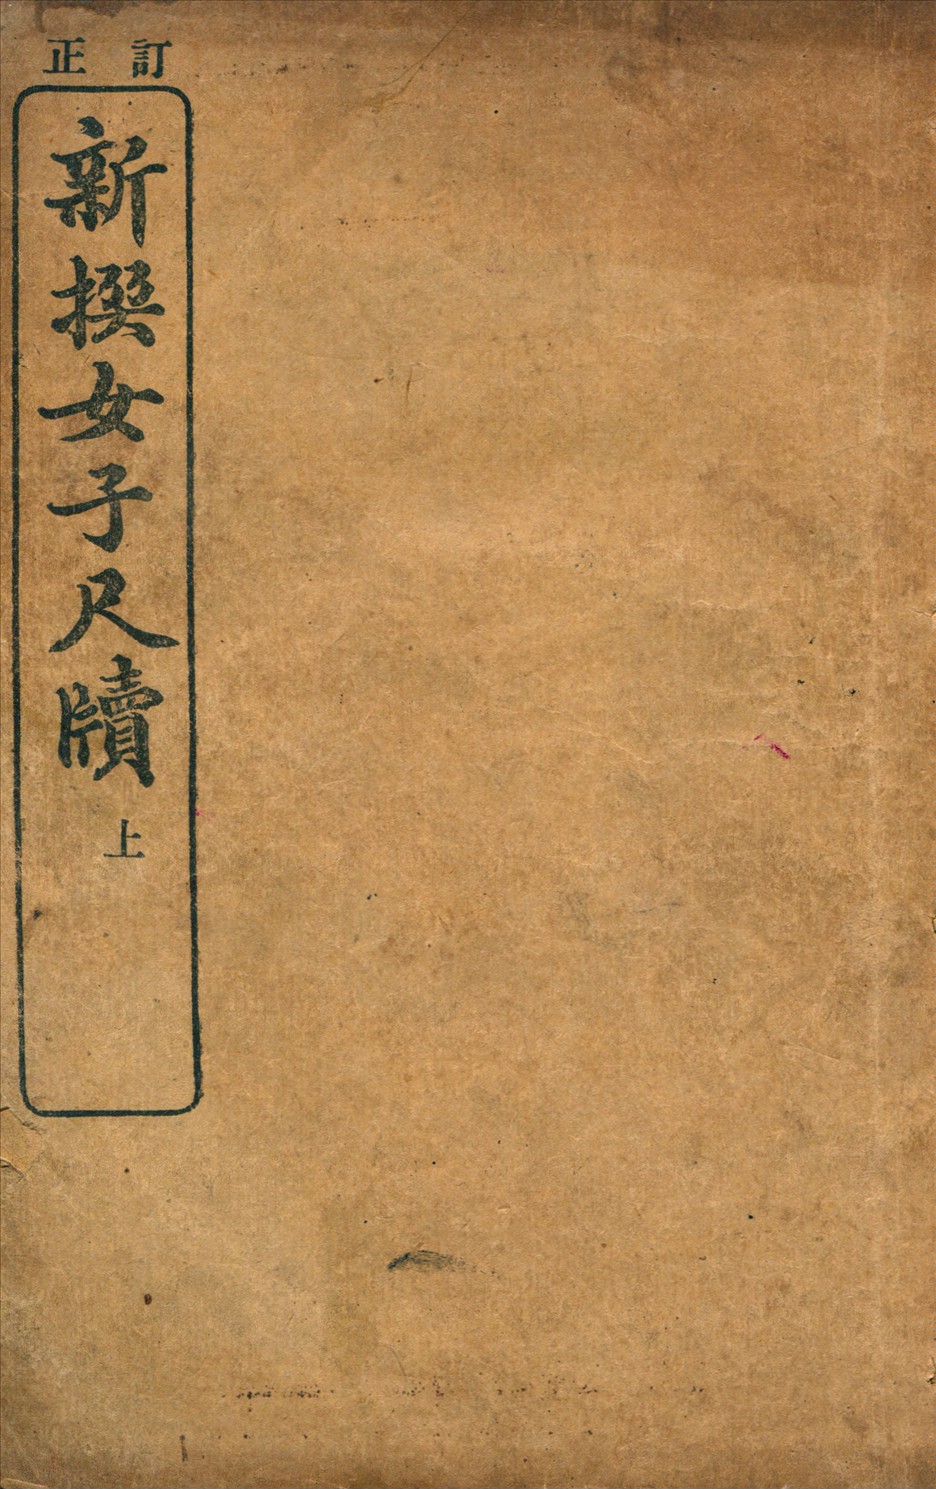 訂正
新撰女子尺牘
上